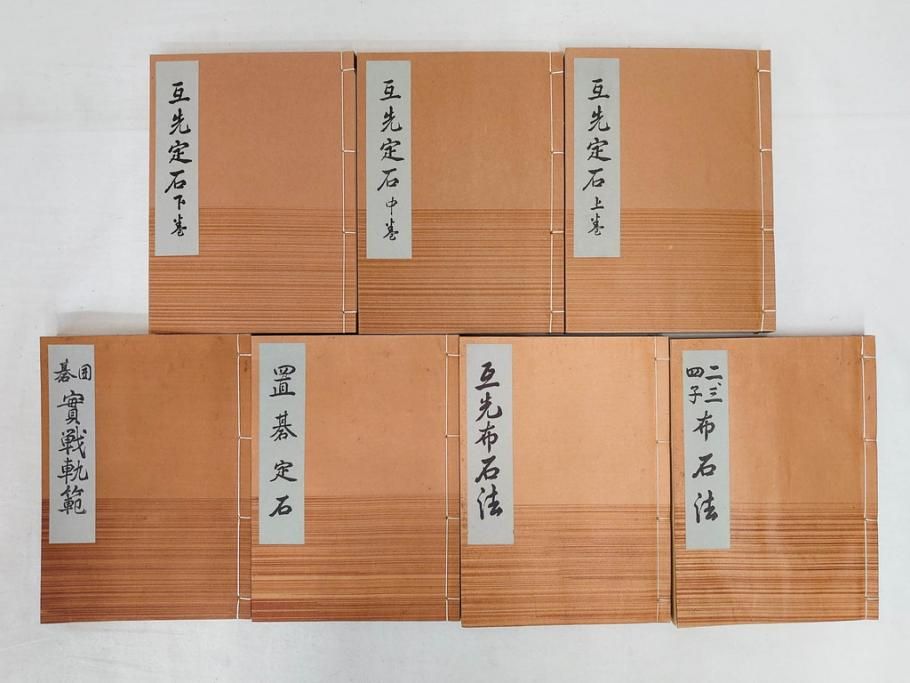 互先定石上巻
互先定石中巻
互先定石下巻
二、三、四子布石法
互先布石法
置碁定石
囲碁實戦軌範